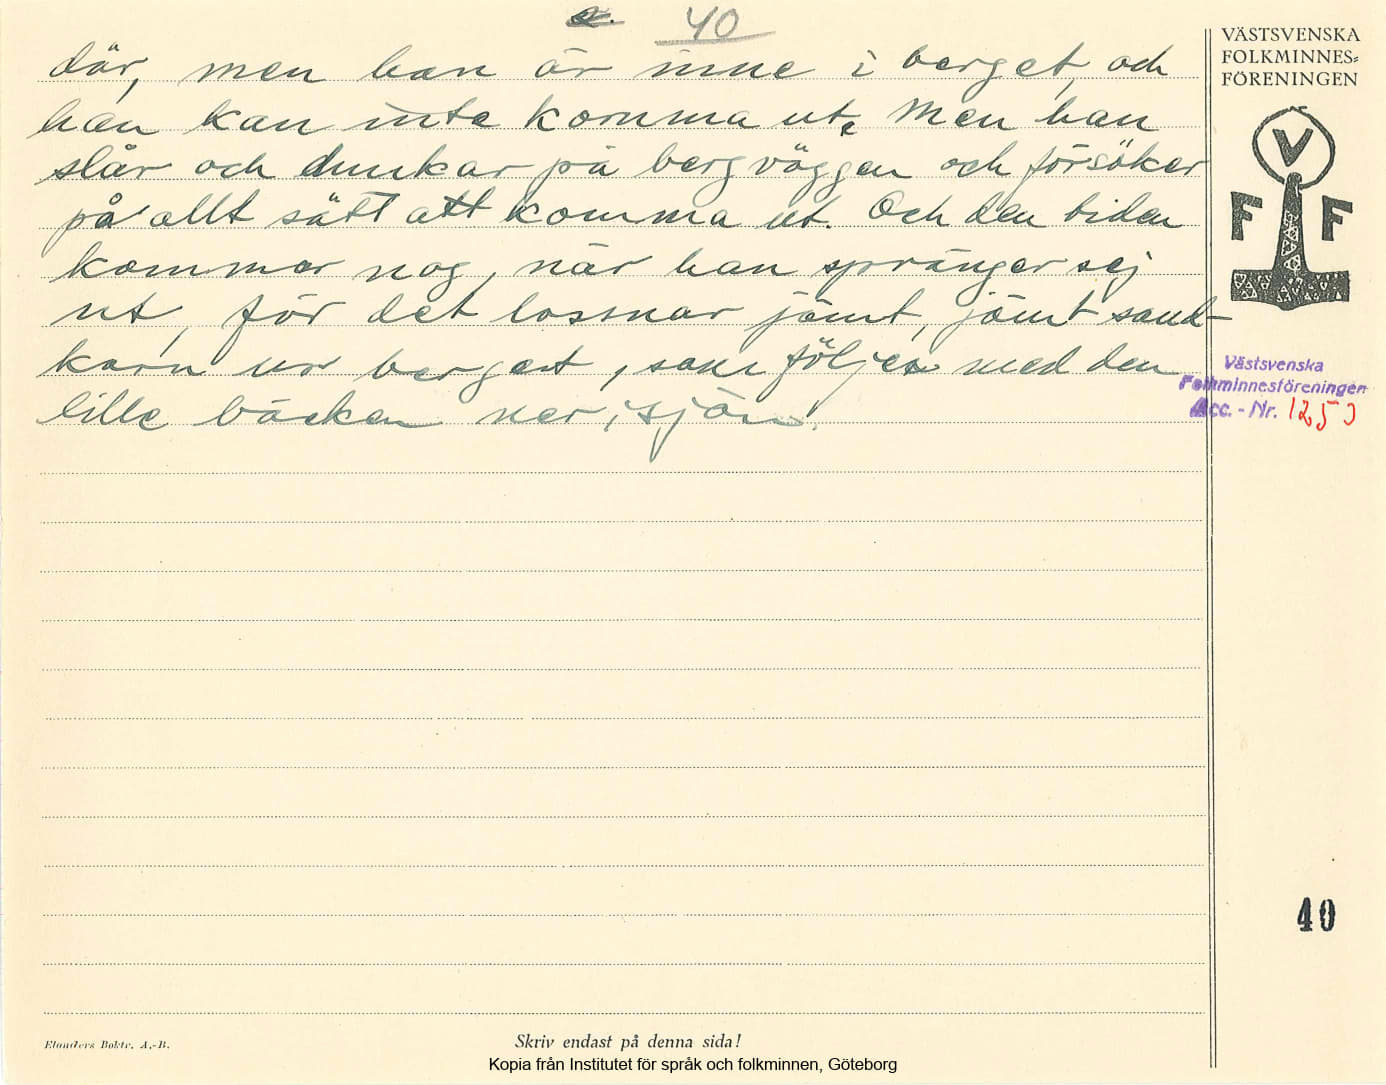 2. 40
där, men han är inne i berget, och
han kan inte komma ut. Men han
slår och dunkar på bergväggen och försöker
på allt sätt att komma ut. Och den tiden
kommer nog, när han spränger sej
ut, för det lossnar jämt, jämt sand-
korn ur berget, som följer med den
lille bäcken ner i sjön!
VÄSTSVENSKA
FOLKMINNES-
FÖRENINGEN
V
F F
Västsvenska
Folkminnesföreningen
Acc. - Nr. 1253
40
Elanders Boktr. A.-B.
Skriv endast på denna sida!
Kopia från Institutet för språk och folkminnen, Göteborg